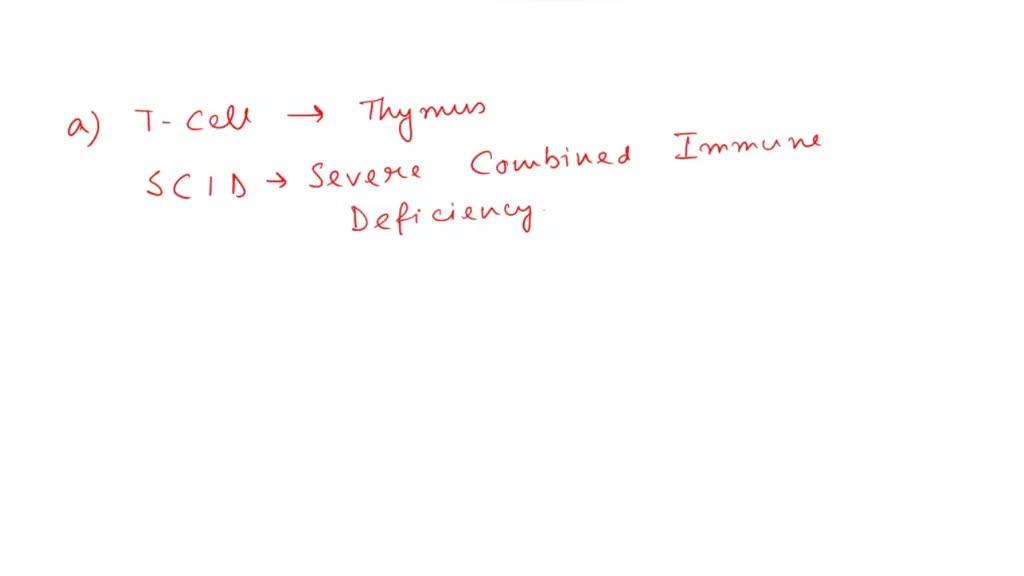 a) T-Cell → Thymus
SCID → Severe Combined Immune
Deficiency